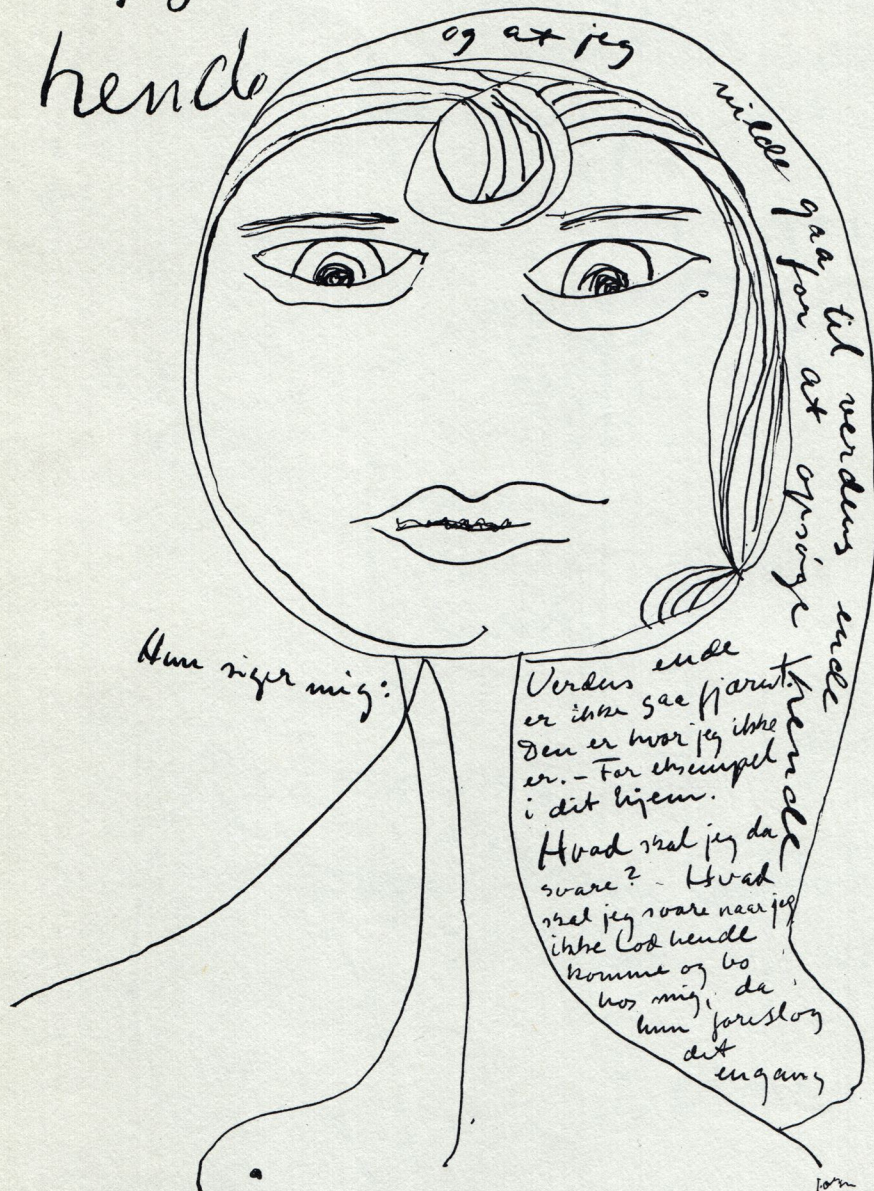 hende
og at jeg vilde gaa til verdens ende
for at opsøge hende
Hun siger mig:
Verdens ende
er ikke saa fjærnt.
Den er hvor jeg ikke
er. – For eksempel
i dit hjem.
Hvad skal jeg da
svare? – Hvad
skal jeg svare naar jeg
ikke lod hende
komme og bo
hos mig, da
hun foreslog
det
engang